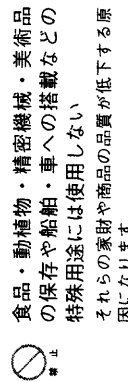 禁止
食品・動植物・精密機械・美術品
の保存や船舶・車への搭載などの
特殊用途には使用しない
それらの家財や商品の品質が低下する原
因になります